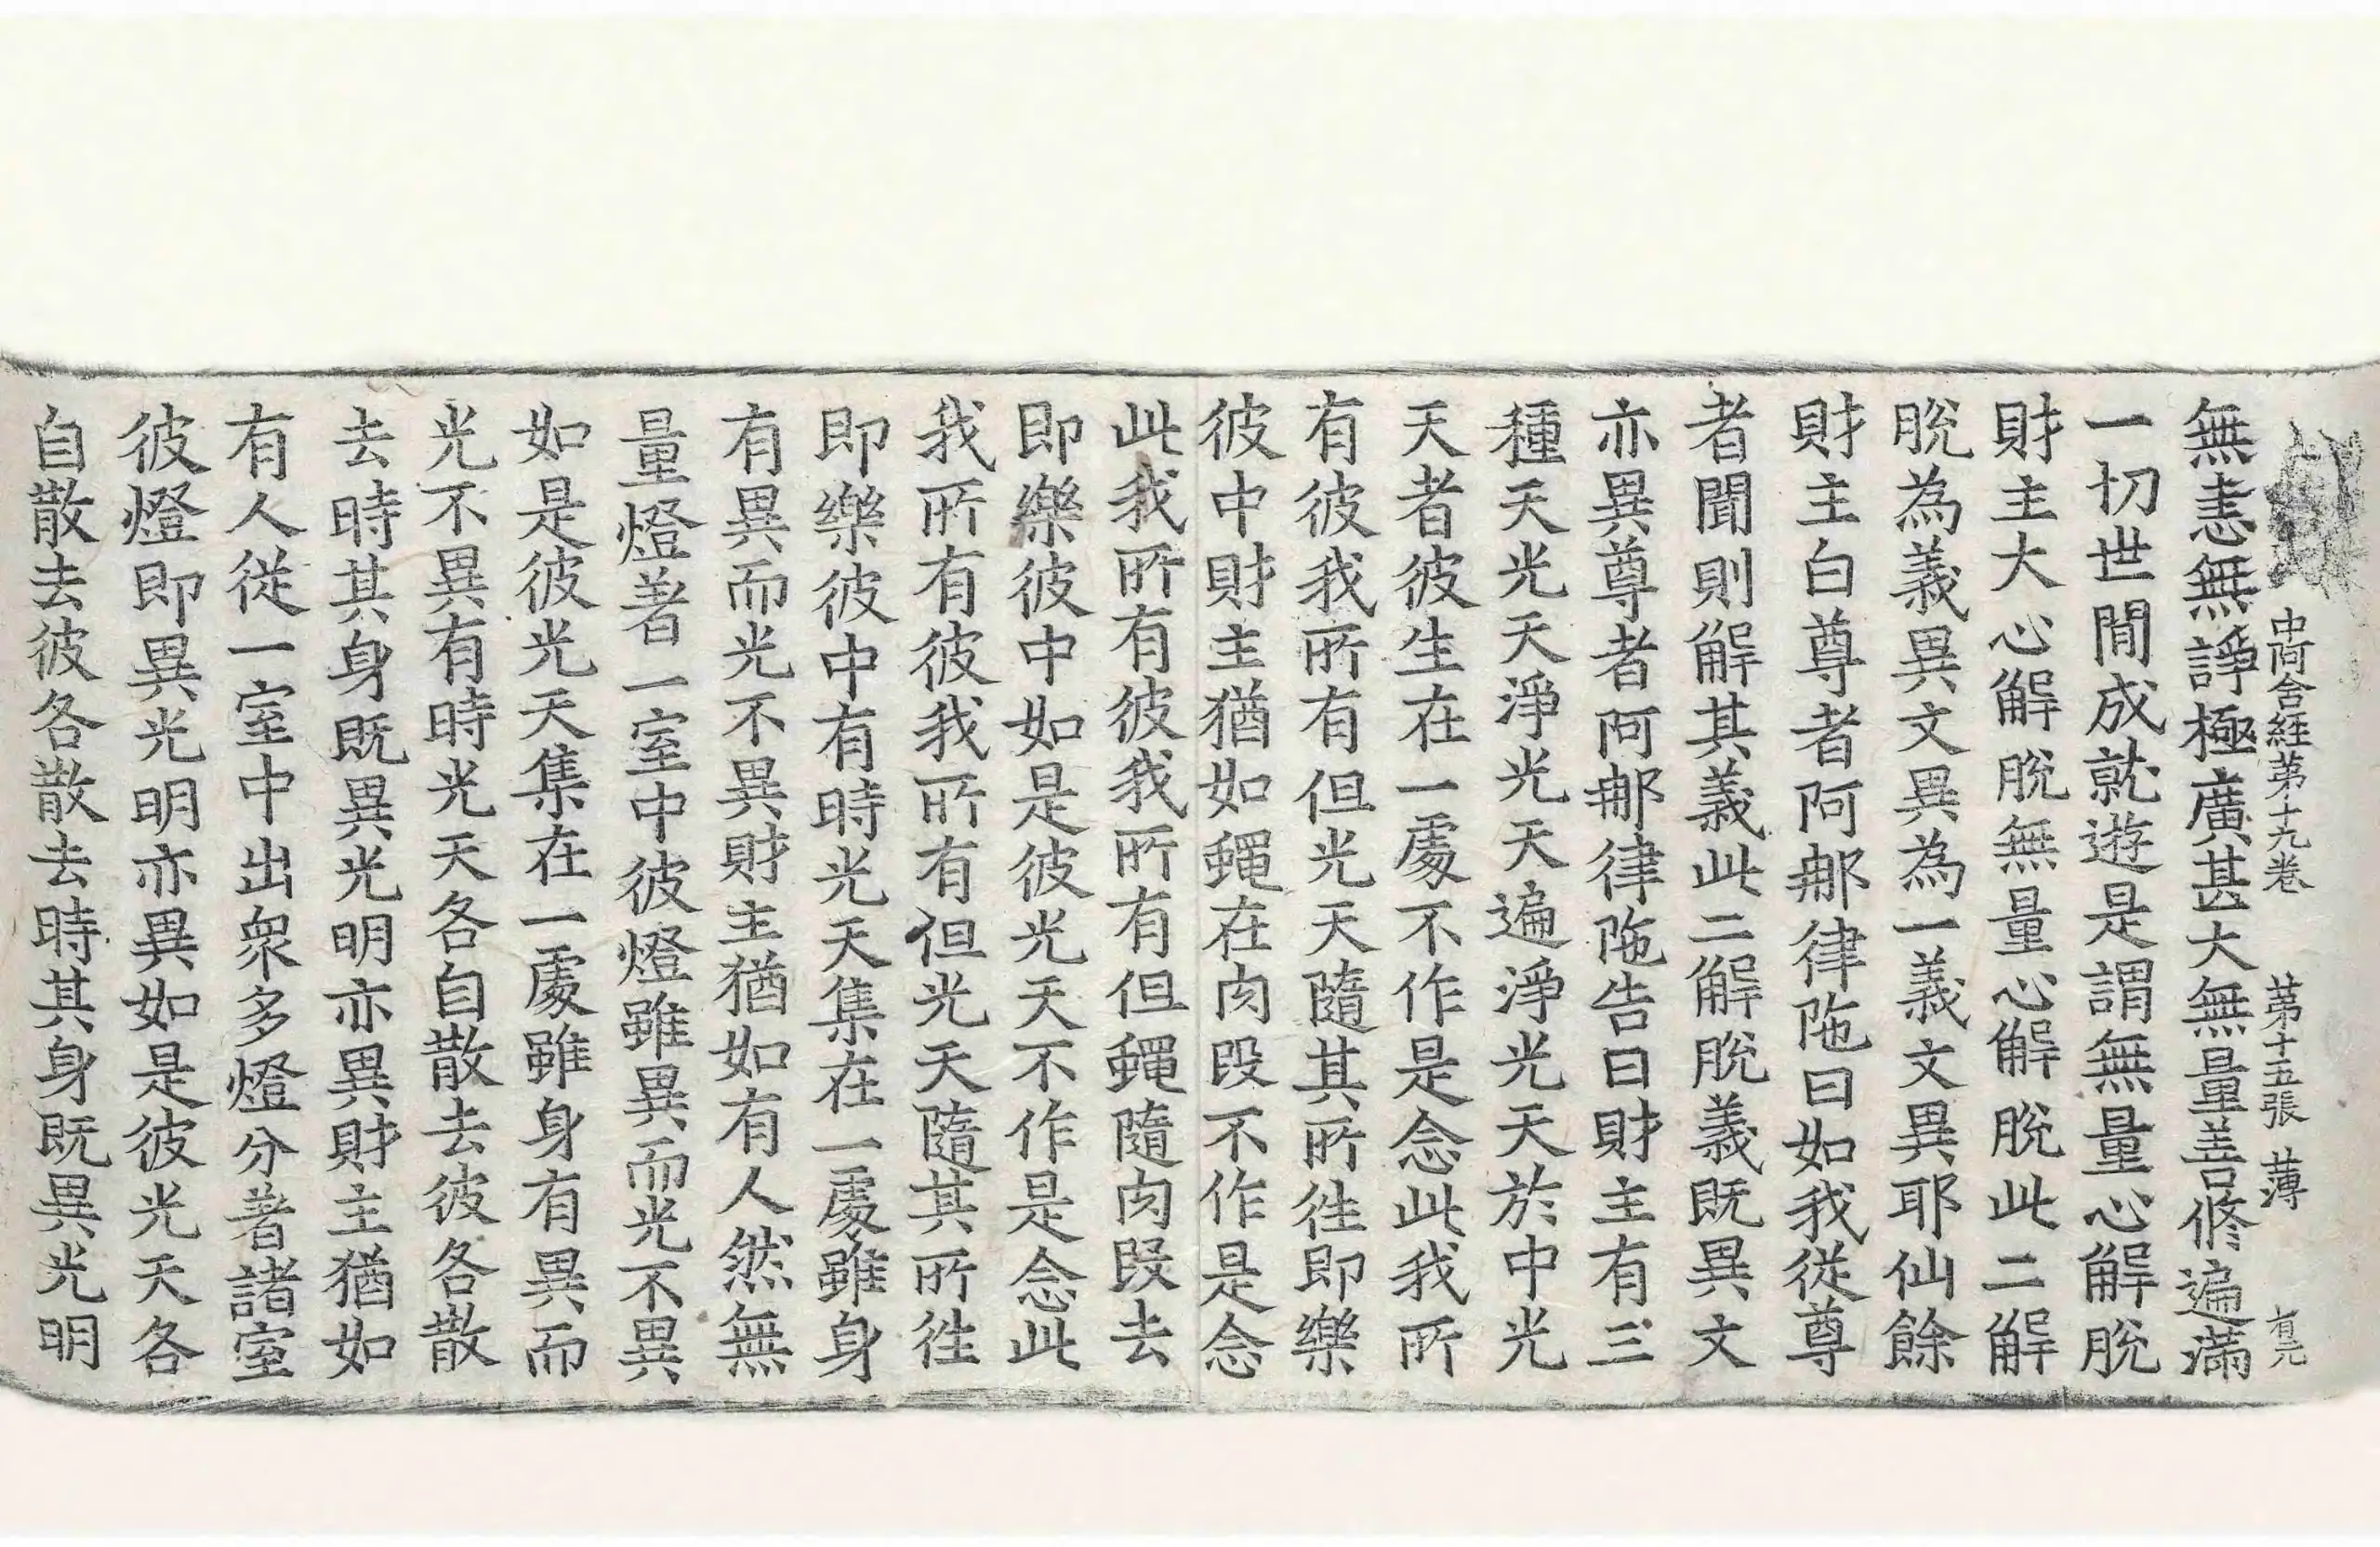 中阿含経第十九巻 第十五張 薄 有元
無恚無諍極廣甚大無量善修遍滿
一切世間成就遊是謂無量心解脫
財主大心解脫無量心解脫此二解
脫為義異文異為一義文異耶仙餘
財主白尊者阿那律陁曰如我從尊
者聞則解其義此二解脫義既異文
亦異尊者阿那律陁告曰財主有三
種天光天淨光天遍淨光天於中光
天者彼生在一處不作是念此我所
有彼我所有但光天隨其所往即樂
彼中財主猶如蠅在肉段不作是念
此我所有彼我所有但蠅隨肉段去
即樂彼中如是彼光天不作是念此
我所有彼我所有但光天隨其所往
即樂彼中有時光天集在一處雖身
有異而光不異財主猶如有人然無
量燈著一室中彼燈雖異而光不異
如是彼光天集在一處雖身有異而
光不異有時光天各自散去彼各散
去時其身既異光明亦異財主猶如
有人從一室中出衆多燈分著諸室
彼燈即異光明亦異如是彼光天各
自散去彼各散去時其身既異光明